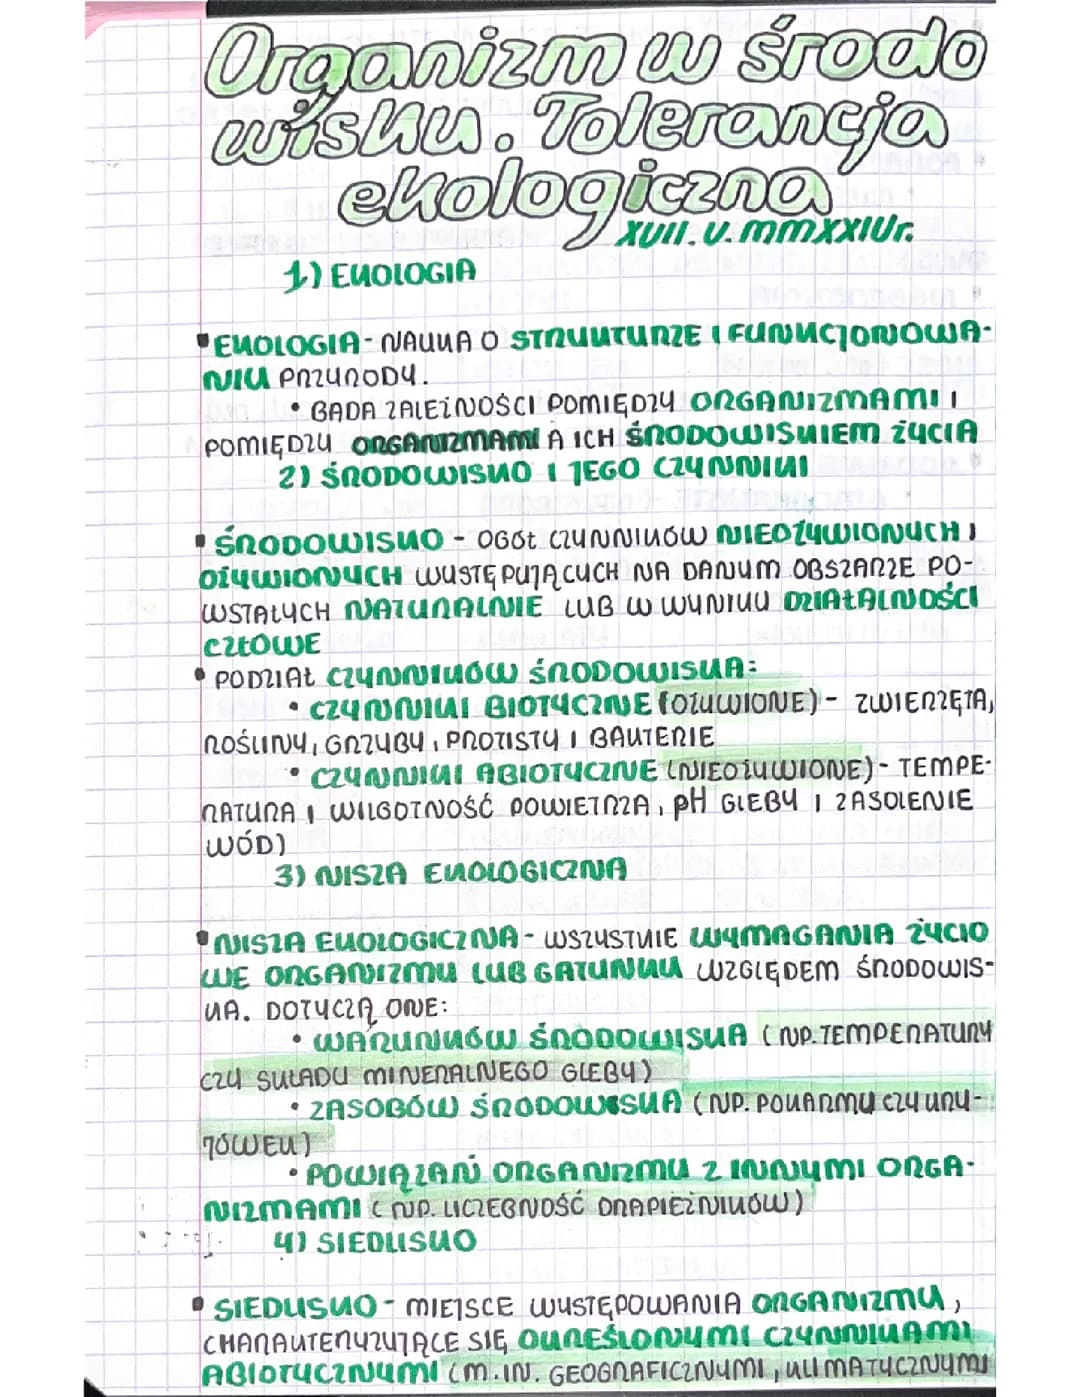 Organizm w środo
wisku. Tolerancja
ekologiczna
XVII.V.MMXXIVr.
1) EKOLOGIA
EKOLOGIA - NAUKA O STRUKTURZE I FUNKCJONOWA-
NIU PRZYRODY.
• BADA ZALEŻNOŚCI POMIĘDZY ORGANIZMAMI I
POMIĘDZY ORGANIZMAMI A ICH ŚRODOWISKIEM ŻYCIA
2) ŚRODOWISKO I JEGO CZYNNIKI
ŚRODOWISKO - OGÓŁ CZYNNIKÓW NIEOŻYWIONYCH I
OŻYWIONYCH WYSTĘPUJĄCYCH NA DANYM OBSZARZE PO-
WSTAŁYCH NATURALNIE LUB W WYNIKU DZIAŁALNOŚCI
CZŁOWE
• PODZIAŁ CZYNNIKÓW ŚRODOWISKA:
• CZYNNIKI BIOTYCZNE (OŻYWIONE) - ZWIERZĘTA,
ROŚLINY, GRZYBY, PROTISTY I BAKTERIE
• CZYNNIKI ABIOTYCZNE (NIEOŻYWIONE) - TEMPE-
RATURA I WILGOTNOŚĆ POWIETRZA, pH GLEBY I ZASOLENIE
WÓD)
3) NISZA EKOLOGICZNA
NISZA EKOLOGICZNA - WSZYSTKIE WYMAGANIA ŻYCIO
WE ORGANIZMU LUB GATUNKU WZGLĘDEM ŚRODOWIS-
KA. DOTYCZĄ ONE:
• WARUNKÓW ŚRODOWISKA (NP. TEMPERATURY
CZY SKŁADU MINERALNEGO GLEBY)
• ZASOBÓW ŚRODOWISKA (NP. POKARMU CZY KRY-
JÓWEK)
• POWIĄZAŃ ORGANIZMU Z INNYMI ORGA-
NIZMAMI (NP. LICZEBNOŚĆ DRAPIEŻNIKÓW)
4) SIEDLISKO
SIEDLISKO - MIEJSCE WYSTĘPOWANIA ORGANIZMU,
CHARAKTERYZUJĄCE SIĘ OKREŚLONYMI CZYNNIKAMI
ABIOTYCZNYMI (M.IN. GEOGRAFICZNYMI, KLIMATYCZNYMI